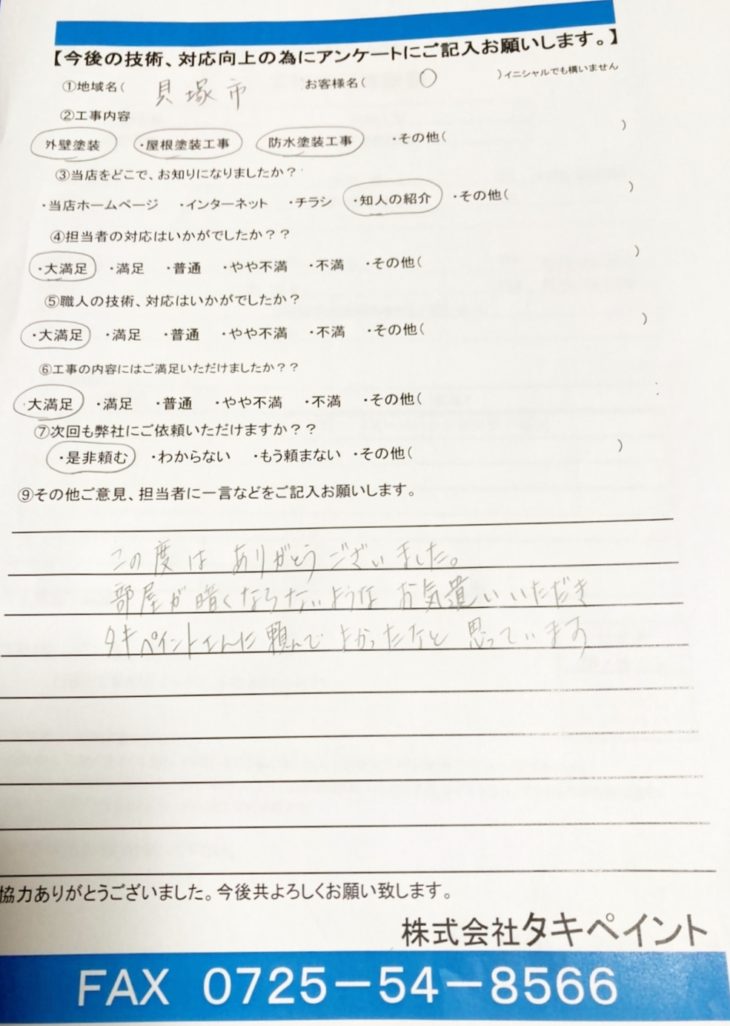 【今後の技術、対応向上の為にアンケートにご記入お願いします。】
①地域名( 貝塚市 お客様名( O )イニシャルでも構いません
②工事内容
外壁塗装 ・屋根塗装工事 防水塗装工事 ・その他( )
③当店をどこで、お知りになりましたか?
・当店ホームページ ・インターネット ・チラシ ・知人の紹介 ・その他( )
④担当者の対応はいかがでしたか??
・大満足 ・満足 ・普通 ・やや不満 ・不満 ・その他( )
⑤職人の技術、対応はいかがでしたか?
・大満足 ・満足 ・普通 ・やや不満 ・不満 ・その他( )
⑥工事の内容にはご満足いただけましたか??
大満足 ・満足 ・普通 ・やや不満 ・不満 ・その他(
⑦次回も弊社にご依頼いただけますか??
・是非頼む ・わからない ・もう頼まない ・その他( )
⑨その他ご意見、担当者に一言などをご記入お願いします。
この度は ありがとうございました。
部屋が暗くならないような お気遣いいただき
タキペイントさんに頼んで よかったなと 思っています
協力ありがとうございました。今後共よろしくお願い致します。
株式会社タキペイント
FAX 0725-54-8566